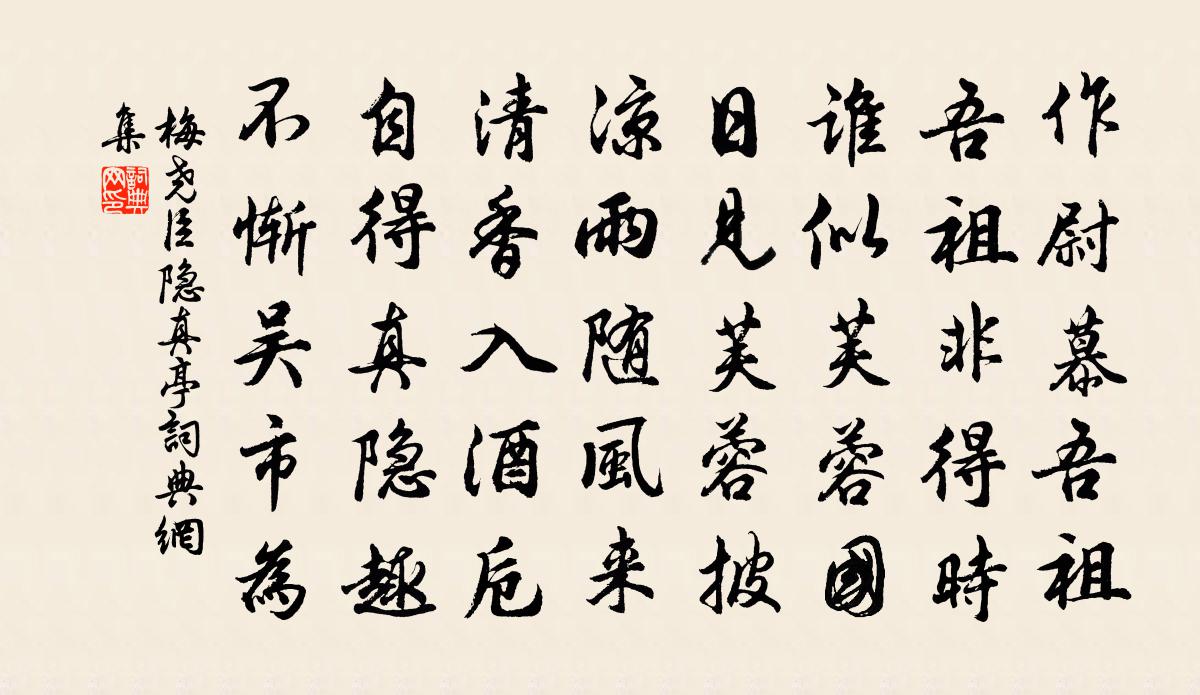 作尉慕吾祖
吾祖非得時
誰似芙蓉國
日見芙蓉披
涼雨随風来
清香入酒卮
自得真隐趣
不慚吴市為
梅尭臣隐真亭詞典網
集
詞典
网印